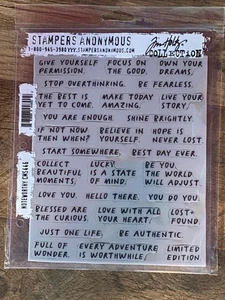 STAMPERS ANONYMOUS
1-800-945-3980 WWW.STAMPERSANONYMOUS.COM
Tim Holtz
COLLECTION
GIVE YOURSELF FOCUS ON OWN YOUR
PERMISSION. THE GOOD. DREAMS.
STOP OVERTHINKING. BE FEARLESS.
THE BEST IS MAKE TODAY LIVE YOUR
YET TO COME. AMAZING. STORY.
YOU ARE ENOUGH. SHINE BRIGHTLY.
IF NOT NOW BELIEVE IN HOPE IS
THEN WHEN? YOURSELF. NEVER LOST.
START SOMEWHERE. BEST DAY EVER.
COLLECT LUCKY. BE YOU.
BEAUTIFUL IS A STATE THE WORLD
MOMENTS. OF MIND. WILL ADJUST.
LOVE YOU. HELLO THERE. YOU DO YOU.
BLESSED ARE LOVE WITH ALL LOST+
THE CURIOUS. YOUR HEART. FOUND.
JUST ONE LIFE. BE AUTHENTIC.
FULL OF EVERY ADVENTURE LIMITED
WONDER. IS WORTHWHILE. EDITION
NOTEWORTHY CMS446